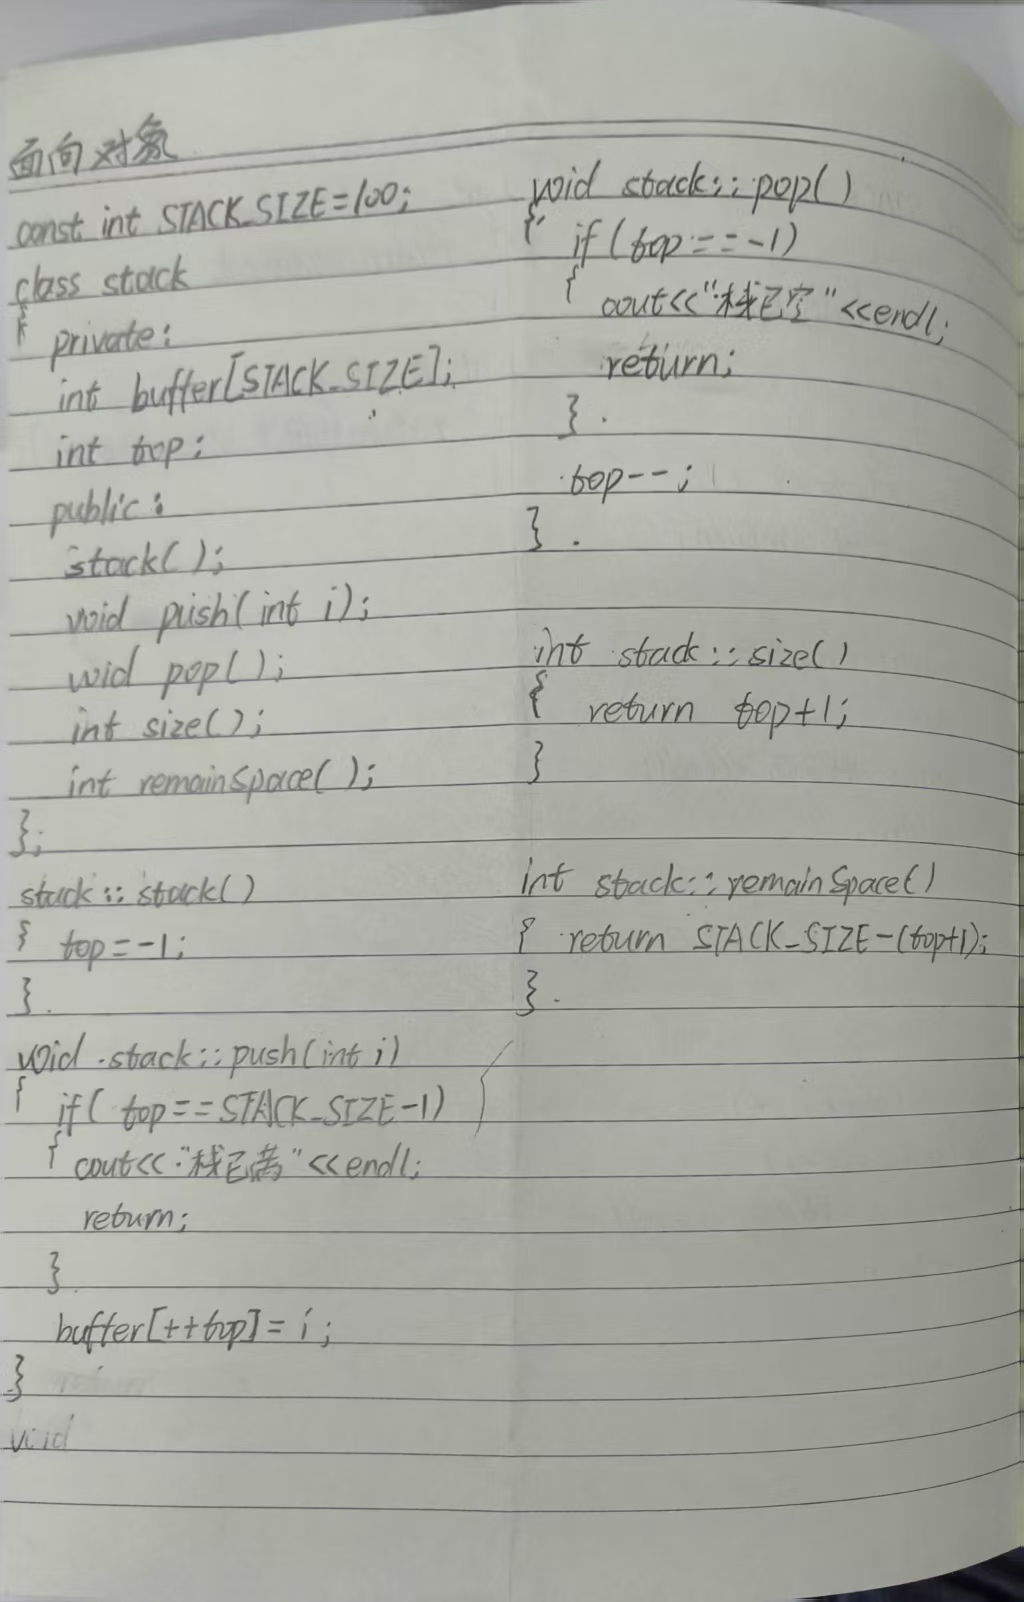 面向对象
const int STACK_SIZE=100;
class stack
{ private:
int buffer[STACK_SIZE];
int top;
public:
stack();
void push(int i);
void pop();
int size();
int remainSpace();
};
stack::stack()
{ top=-1;
}
void stack::push(int i)
{ if( top==STACK_SIZE-1)
{ cout<<"栈已满"<<endl;
return;
}
buffer[++top]= i;
}
void
void stack::pop()
{ if(top==-1)
{ cout<<"栈已空"<<endl;
return;
}
top--;
}
int stack::size()
{ return top+1;
}
int stack::remainSpace()
{ return STACK_SIZE-(top+1);
}